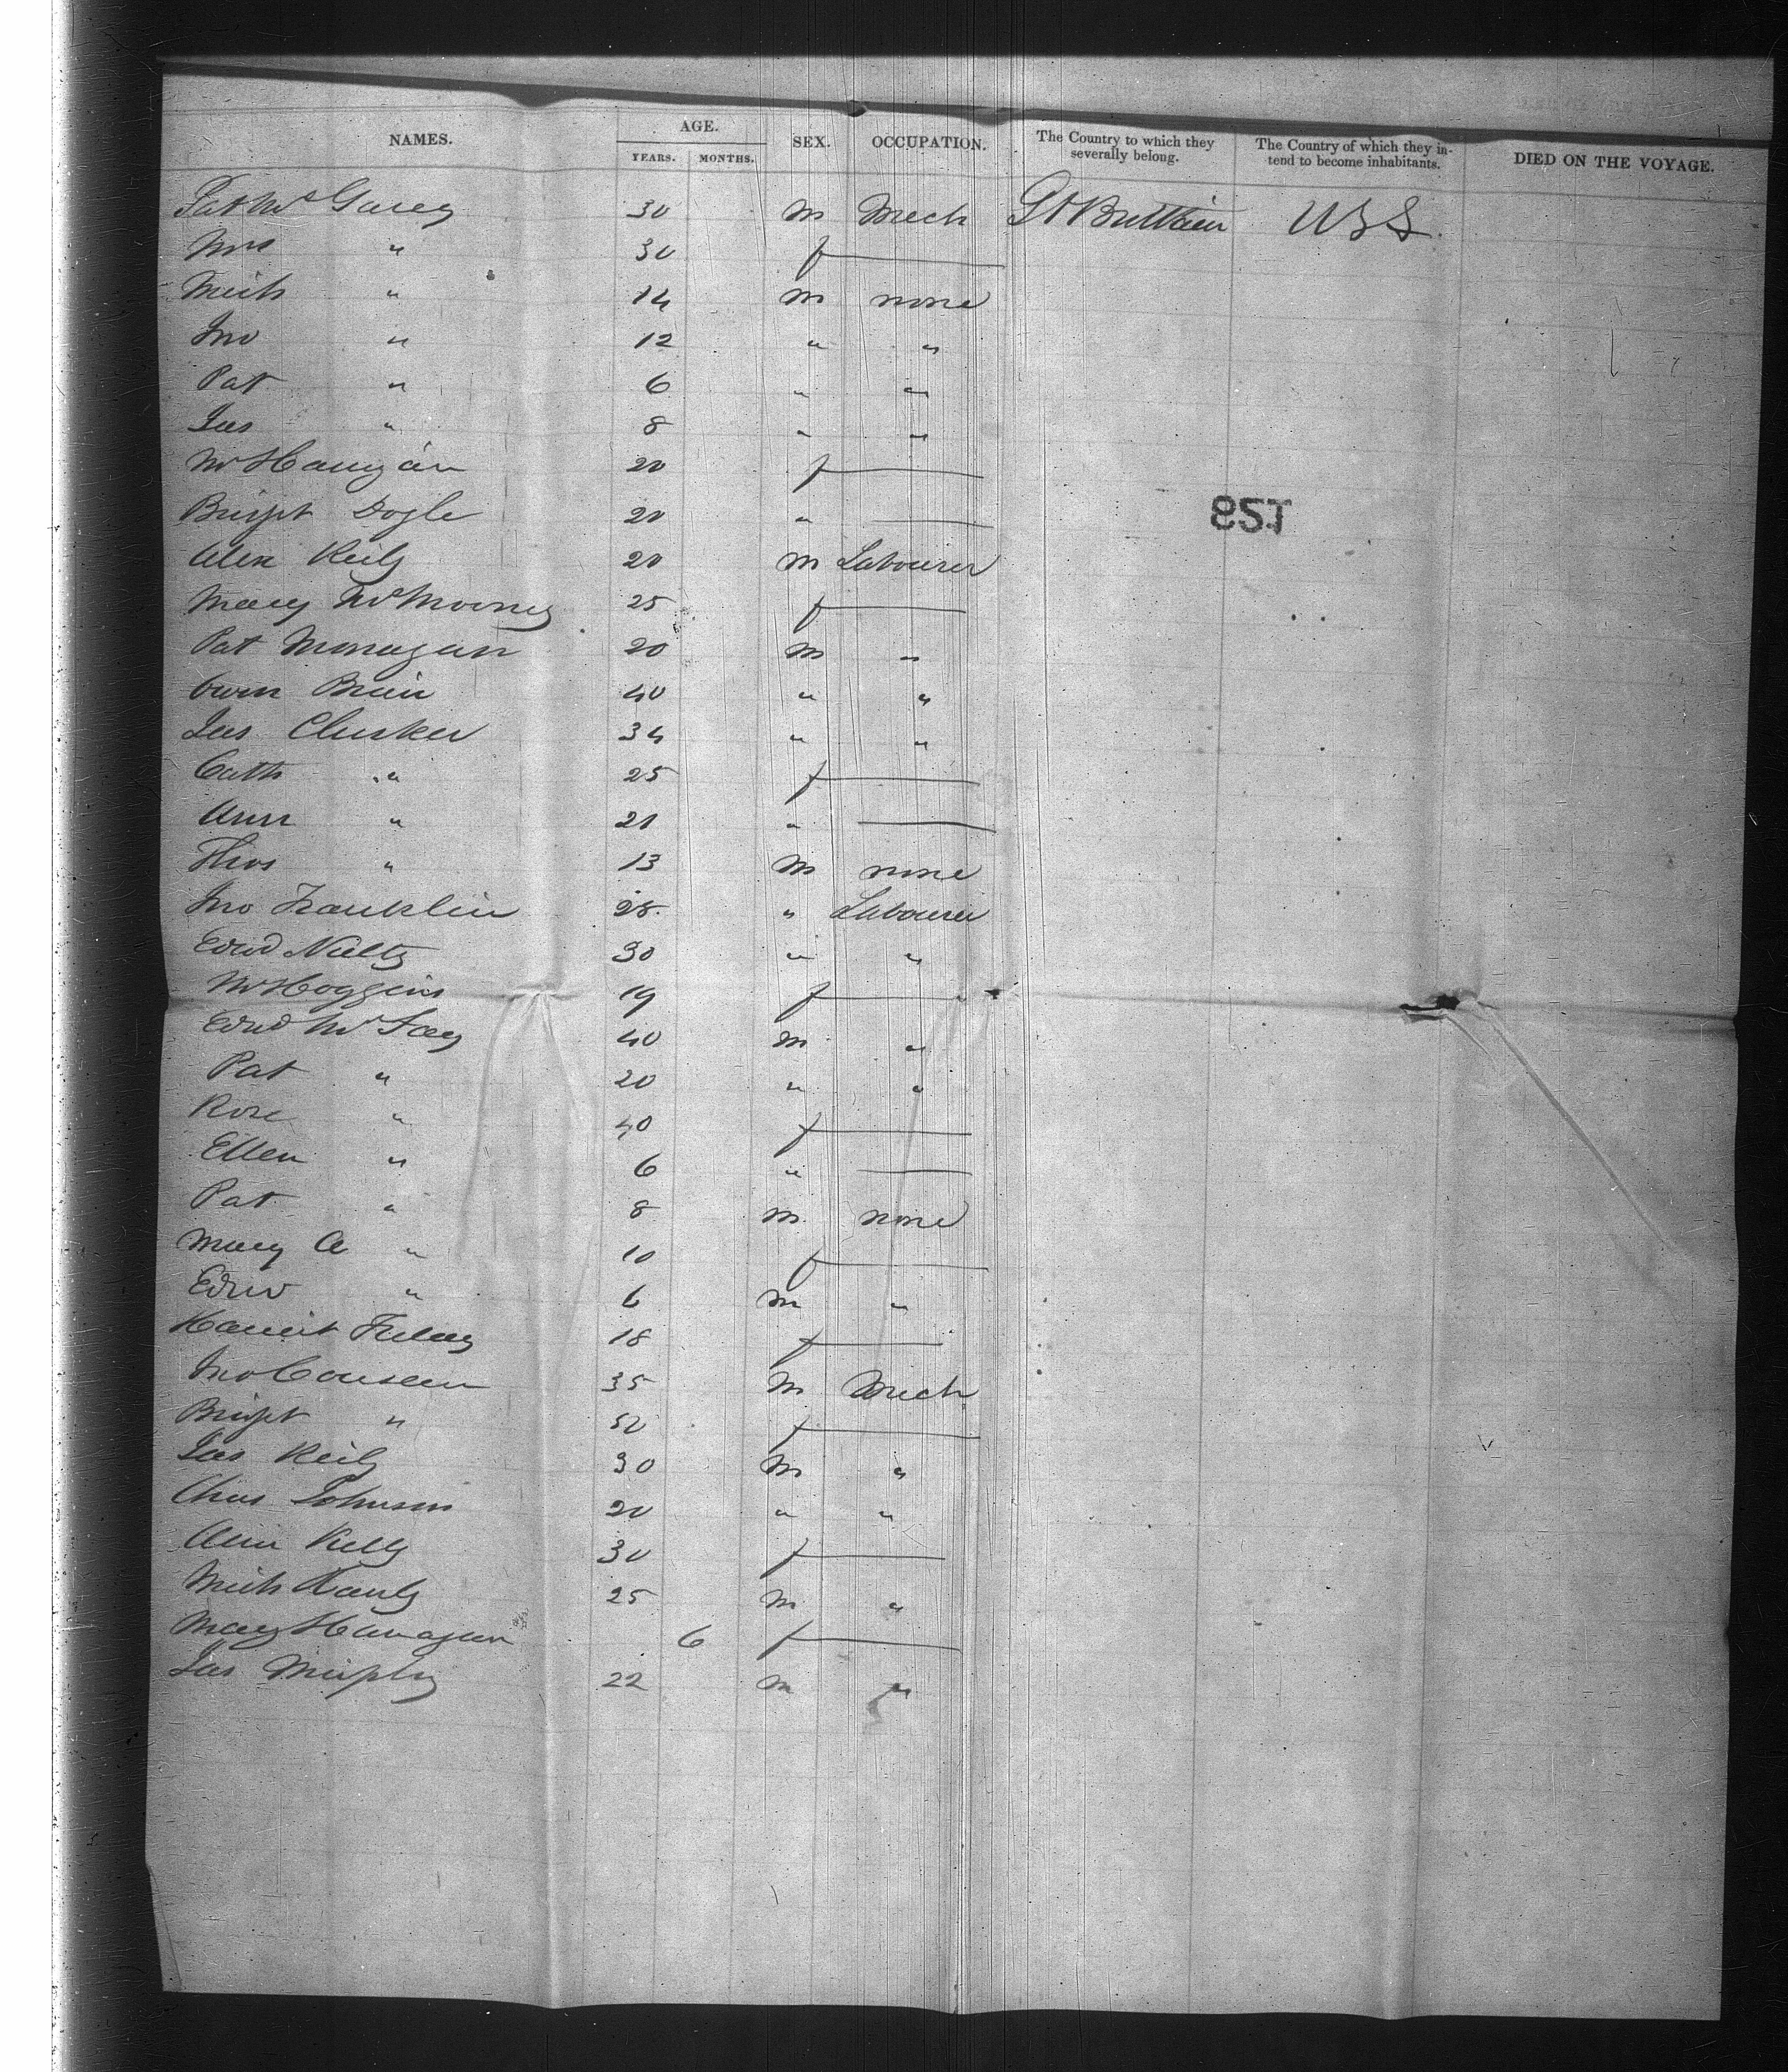 NAMES. AGE. SEX. OCCUPATION. The Country to which they severally belong. The Country of which they intend to become inhabitants. DIED ON THE VOYAGE.
YEARS. MONTHS.
Pat Mc Garey 30 m Mech Gt Brittain USS
Mrs " 30 f
Mich " 14 m none
Jno " 12 " "
Pat " 6 " "
Jas " 8 " "
20 f
Bridgt Dogle 20 "
Alex Reily 20 m Labourer
Mary McMooney 25 f
Pat Monagan 20 m "
Owen Brien 40 " "
Jas Clusker 34 " "
Cath " 25 f
Ann " 21 "
Thos " 13 m none
Jno Franklin 28 " Labourer
Edwd 30 " "
19 f
Edwd 40 m "
Pat " 20 " "
Rose " 40 f
Ellen " 6 "
Pat " 8 m none
Mary A " 10 f
Edw " 6 m "
18 f
Jno 35 m Mech
Bridgt " 50 f
Jas Reily 30 m "
Chas Johnson 20 " "
Kelly 30 f
Mich 25 m "
Mary Hanagan 6 f
Jas Murphy 22 m "
128